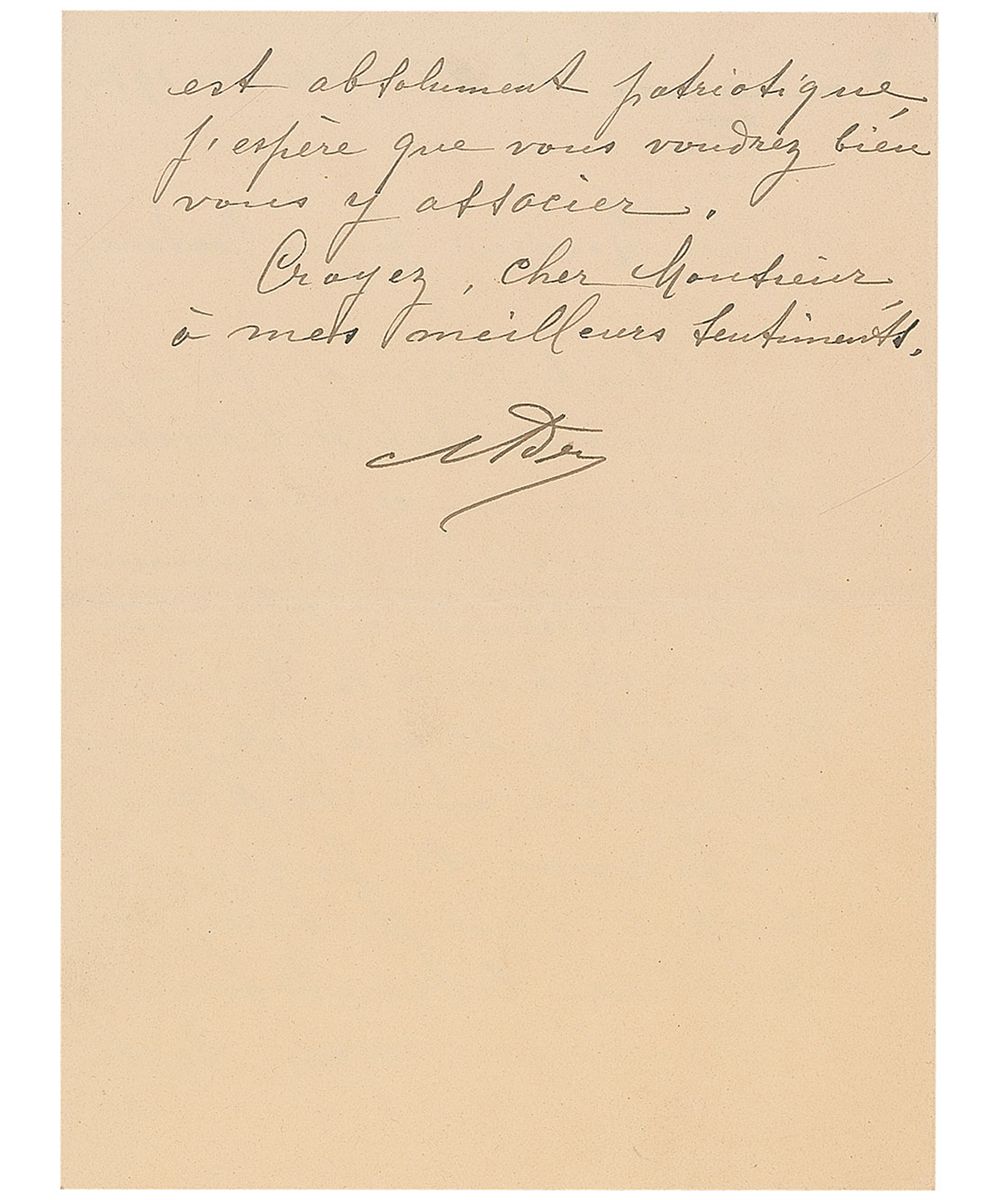 est absolument patriotique,
j'espère que vous voudrez bien
vous y associer.
Croyez, cher Monsieur,
à mes meilleurs sentiments.